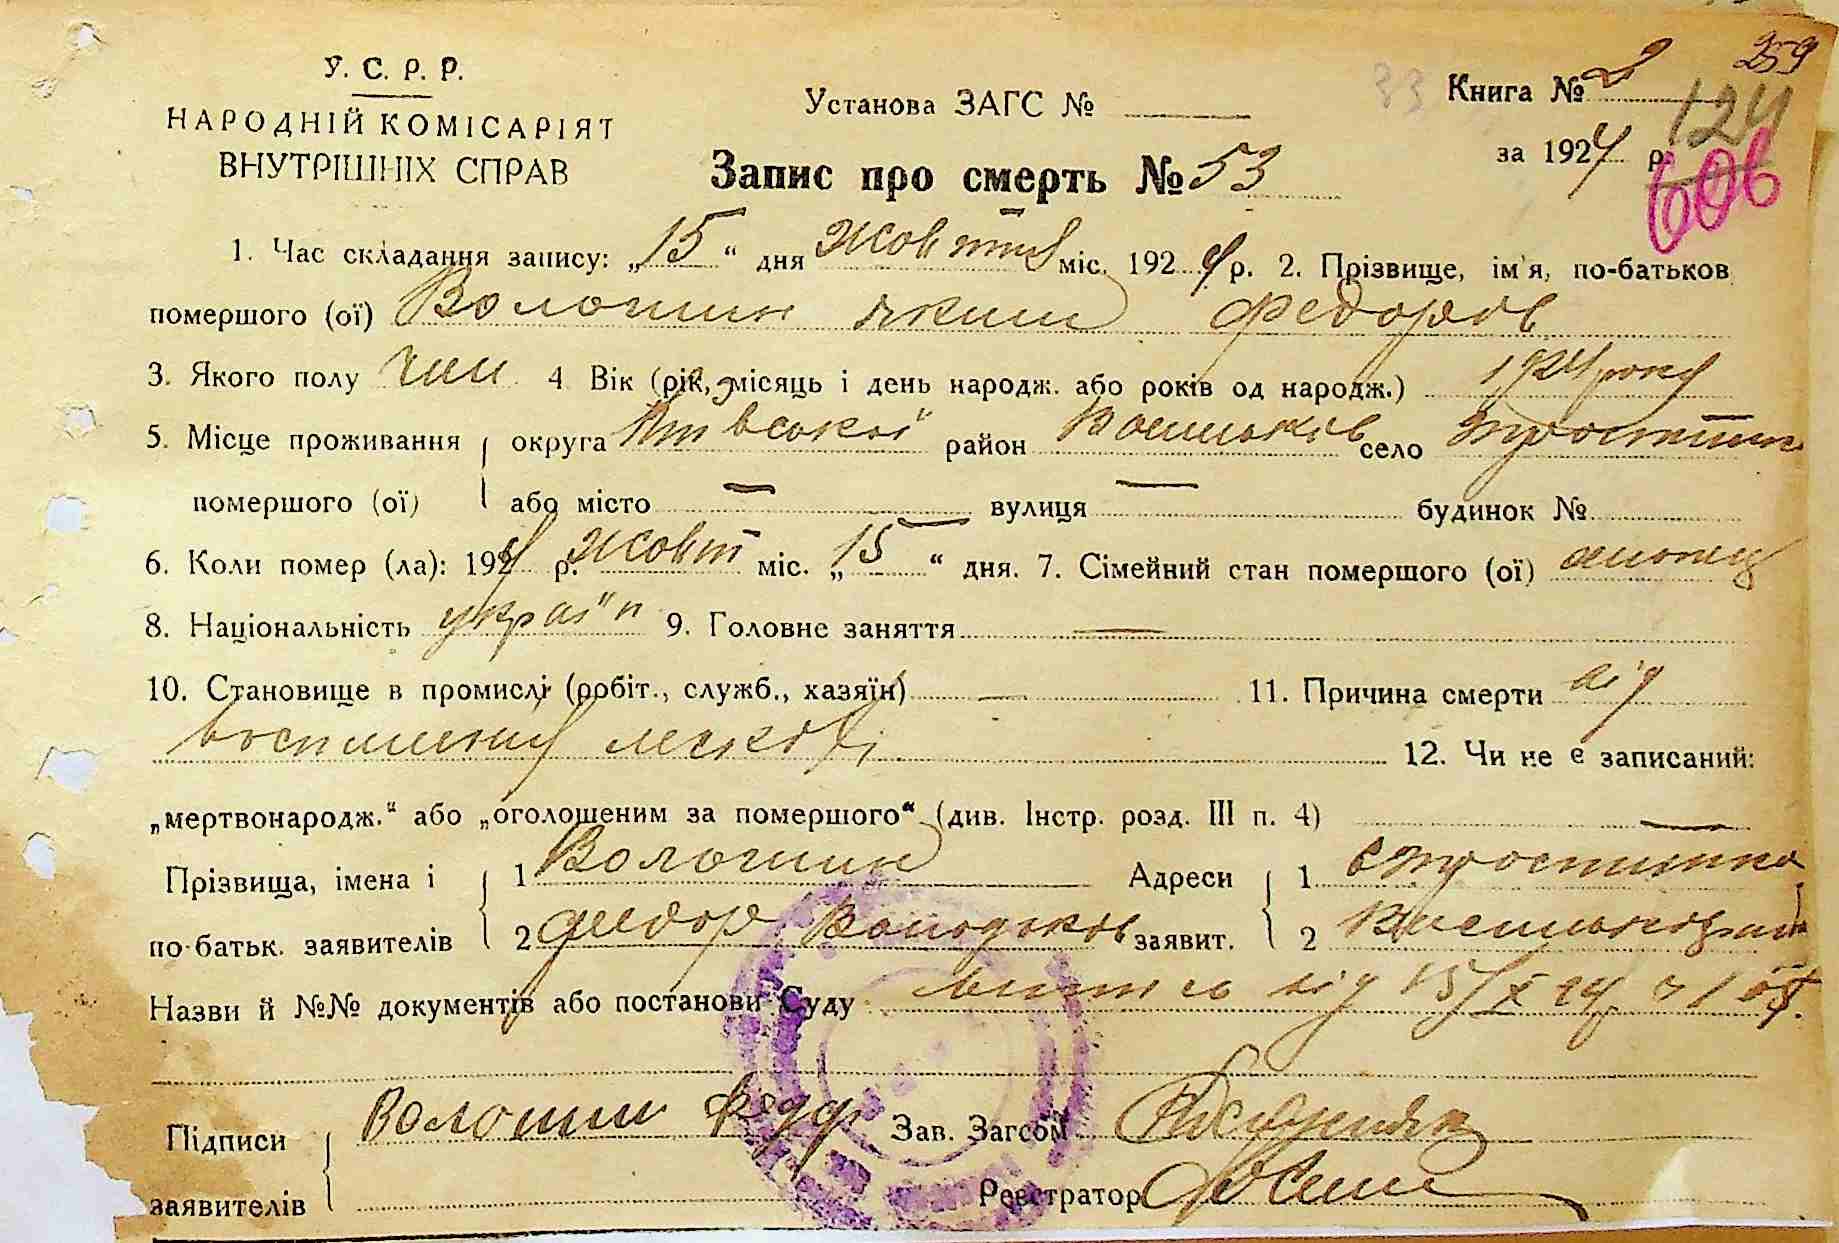 259
У. С. Р. Р.
НАРОДНІЙ КОМІСАРІЯТ
ВНУТРІШНІХ СПРАВ
Установа ЗАГС №
33 Книга № 2
124
за 1924 р.
606
Запис про смерть № 53
1. Час складання запису: „15“ дня Жовтня міс. 1924 р. 2. Прізвище, ім'я, по-батьков
помершого (ої) Волошин Яким Федоров
3. Якого полу чол 4 Вік (рік, місяць і день народж. або років од народж.) 1924 року
5. Місце проживання округа район село
помершого (ої) або місто — вулиця — будинок №
6. Коли помер (ла): 1924 р. Жовт міс. „15“ дня. 7. Сімейний стан помершого (ої)
8. Національність україн 9. Головне заняття —
10. Становище в промислі (робіт., служб., хазяїн) — 11. Причина смерти від
12. Чи не є записаний:
„мертвонародж.“ або „оголошеним за помершого“ (див. Інстр. розд. III п. 4) —
Прізвища, імена і 1 Волошин Адреси 1
по-батьк. заявителів 2 Федор заявит. 2
Назви й №№ документів або постанови Суду від 15/X 24
Підписи Волошин Федор Зав. Загсом
заявителів Реєстратор